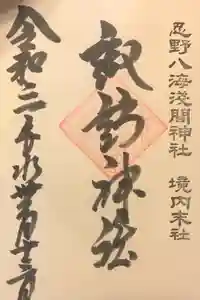 忍野八海淺間神社　境内末社
諏訪神社
令和二年水無月十二日